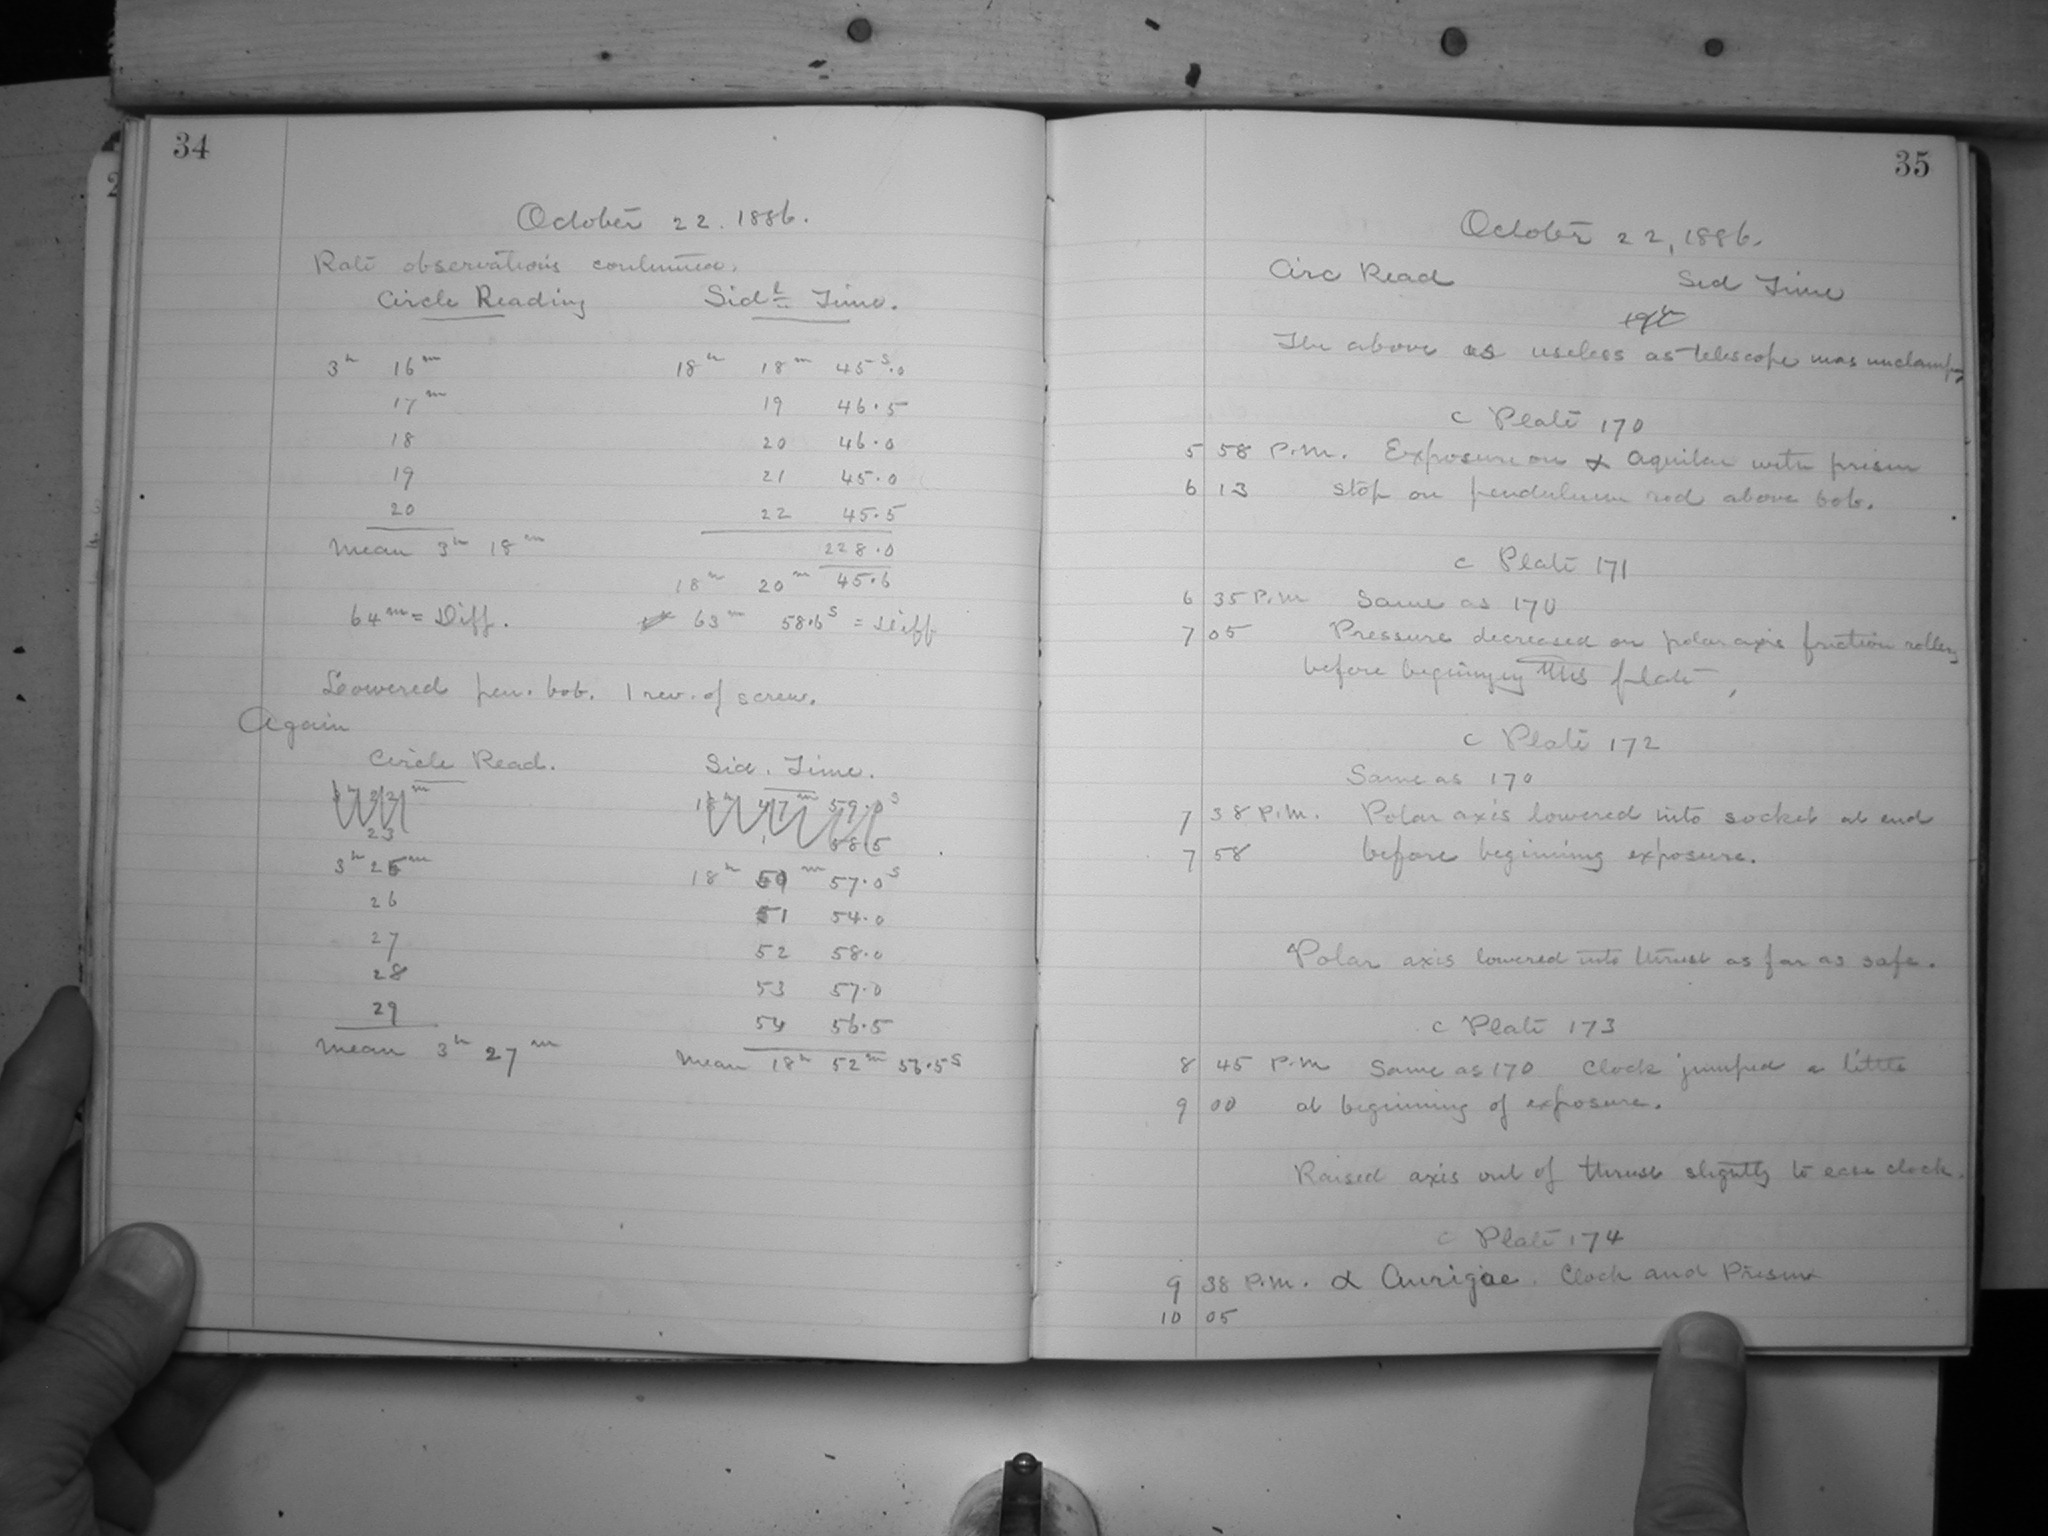 34
October 22. 1886.
Rate observations continued.
Circle Reading Sidl Time.
3h 16m 18h 18m 45s.0
17m 19 46.5
18 20 46.0
19 21 45.0
20 22 45.5
Mean 3h 18m 228.0
18h 20m 45.6
64m = Diff. 63m 58.6s = Diff
Lowered pen. bob. 1 rev. of screw.
Again
Circle Read. Sid. Time.
3h 22m 18h 47m 59.0s
23 58.5
3h 25m 18h 50m 57.0s
26 51 54.0
27 52 58.0
28 53 57.0
29 54 56.5
Mean 3h 27m Mean 18h 52m 56.5s
35
October 22, 1886.
Circ Read Sid Time
19h
The above is useless as telescope was unclamped
C Plate 170
5 58 P.M. Exposure on α Aquilae with prism
6 13 Stop on pendulum rod above bob.
C Plate 171
6 35 P.M Same as 170
7 05 Pressure decreased on polar axis friction rollers
before beginning this plate,
C Plate 172
Same as 170
7 38 P.M. Polar axis lowered into socket at end
7 58 before beginning exposure.
Polar axis lowered into thrust as far as safe.
C Plate 173
8 45 P.M Same as 170 Clock jumped a little
9 00 at beginning of exposure.
Raised axis out of thrust slightly to ease clock.
C Plate 174
9 38 P.M. α Aurigae. Clock and Prism
10 05